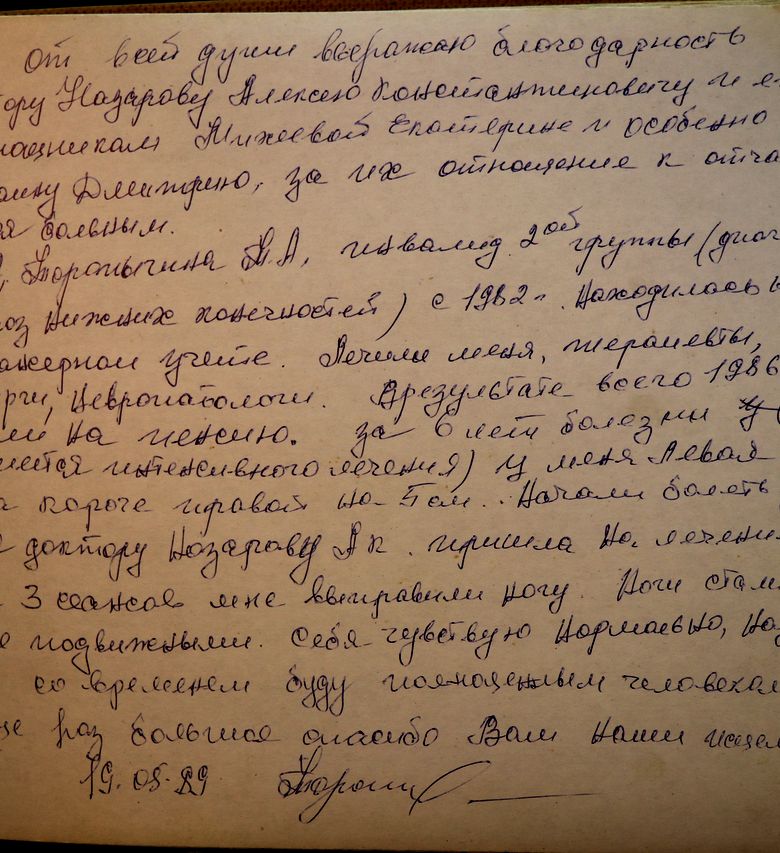 От всей души выражаю благодарность
тору Назарову Алексею Константиновичу и е
мощникам Михеевой Екатерине и особенно
Дмитрию, за их отношение к отча
ся больным.
Я, Торопычина Т.А, инвалид 2ой группы (диаг
оз нижних конечностей) с 1982 г. Находилась н
ансерном учете. Лечили меня, терапевты,
рги, невропатологи. В результате всего 1986
ли на пенсию. За 6 лет болезни
меется интенсивного лечения) у меня левая
а короче правой на 5 см. Начали болеть
к доктору Назарову А К. пришла на лечени
3 сеансов мне выправили ногу. Ноги стали
е подвижными. Себя чувствую нормально, на
со временем буду полноценным человеком
ще раз большое спасибо Вам наши исцел
19.05.89